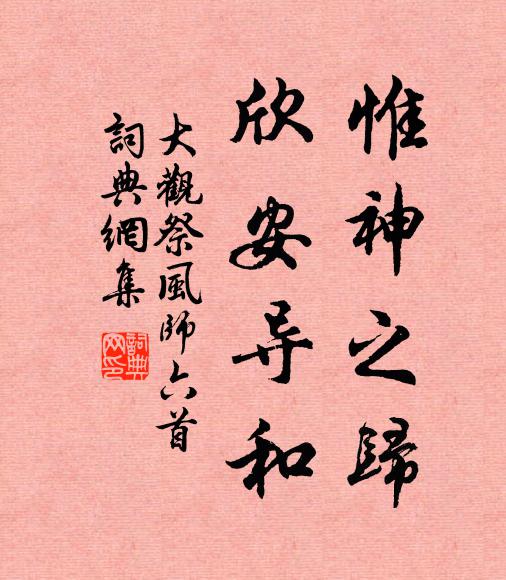 惟神之歸
欣安导和
大觀祭風師六首
詞典網集
詞典
网印